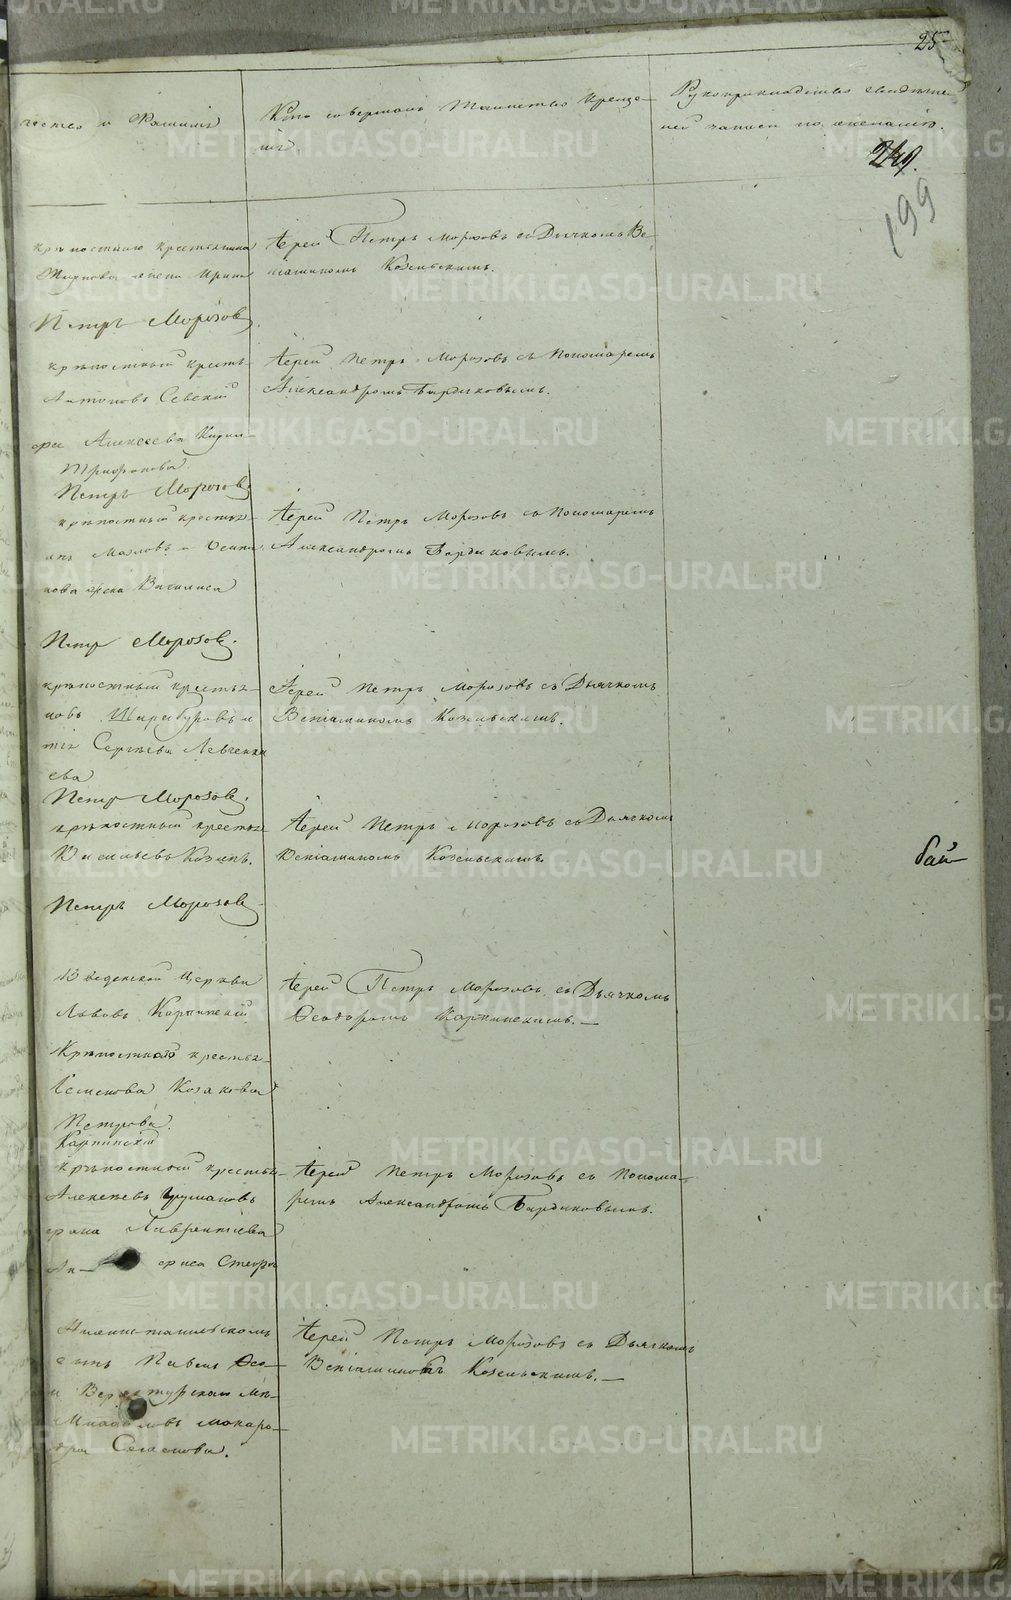 25
чество и Фамилия
Кто совершал Таинство Креще-
ния.
Рукоприкладство свидѣте-
лей записи по желанію.
249.
199
крѣпостнаго крестьянина
Іерей Петръ Морозовъ съ Дьячкомъ Ве-
ніаминомъ Козельскимъ.
Петръ Морозовъ.
крѣпостный кресть-
Антоновъ Севскій
Іерей Петръ Морозовъ съ Пономаремъ
Александромъ Бардиковымъ.
Алексеева Кирил-
Трифонова
Петръ Морозовъ
крѣпостный крестья-
Мазловъ и Осипа
Іерей Петръ Морозовъ съ Пономаремъ
Александромъ Бардиковымъ.
нова Василиса
Петръ Морозовъ.
крѣпостный крестья-
новъ Шарабуровъ и
Сергѣева Левченка
ева
Іерей Петръ Морозовъ съ Дьячкомъ
Веніаминомъ Козельскимъ.
Петръ Морозовъ.
крѣпостный крестья-
Васильевъ Козелъ.
Іерей Петръ Морозовъ съ Дьячкомъ
Веніаминомъ Козельскимъ.
бай
Петръ Морозовъ
Введенской Церкви
Карпинскій
Іерей Петръ Морозовъ съ Дьячкомъ
Ѳеодоромъ Карпинскимъ.—
Крѣпостнаго крестья-
Семенова Козакова
Петрова.
Карпинскій
крѣпостной крестья-
Алексѣевъ Чумановъ
Лаврентіева
Іерей Петръ Морозовъ съ Понома-
ремъ Александромъ Бардиковымъ.
Нижнетагильскомъ
сынъ Павелъ Ѳео-
и Верхотурскаго
Макаро-
Семенова.
Іерей Петръ Морозовъ съ Дьячкомъ
Веніаминомъ Козельскимъ.—
METRIKI.GASO-URAL.RU